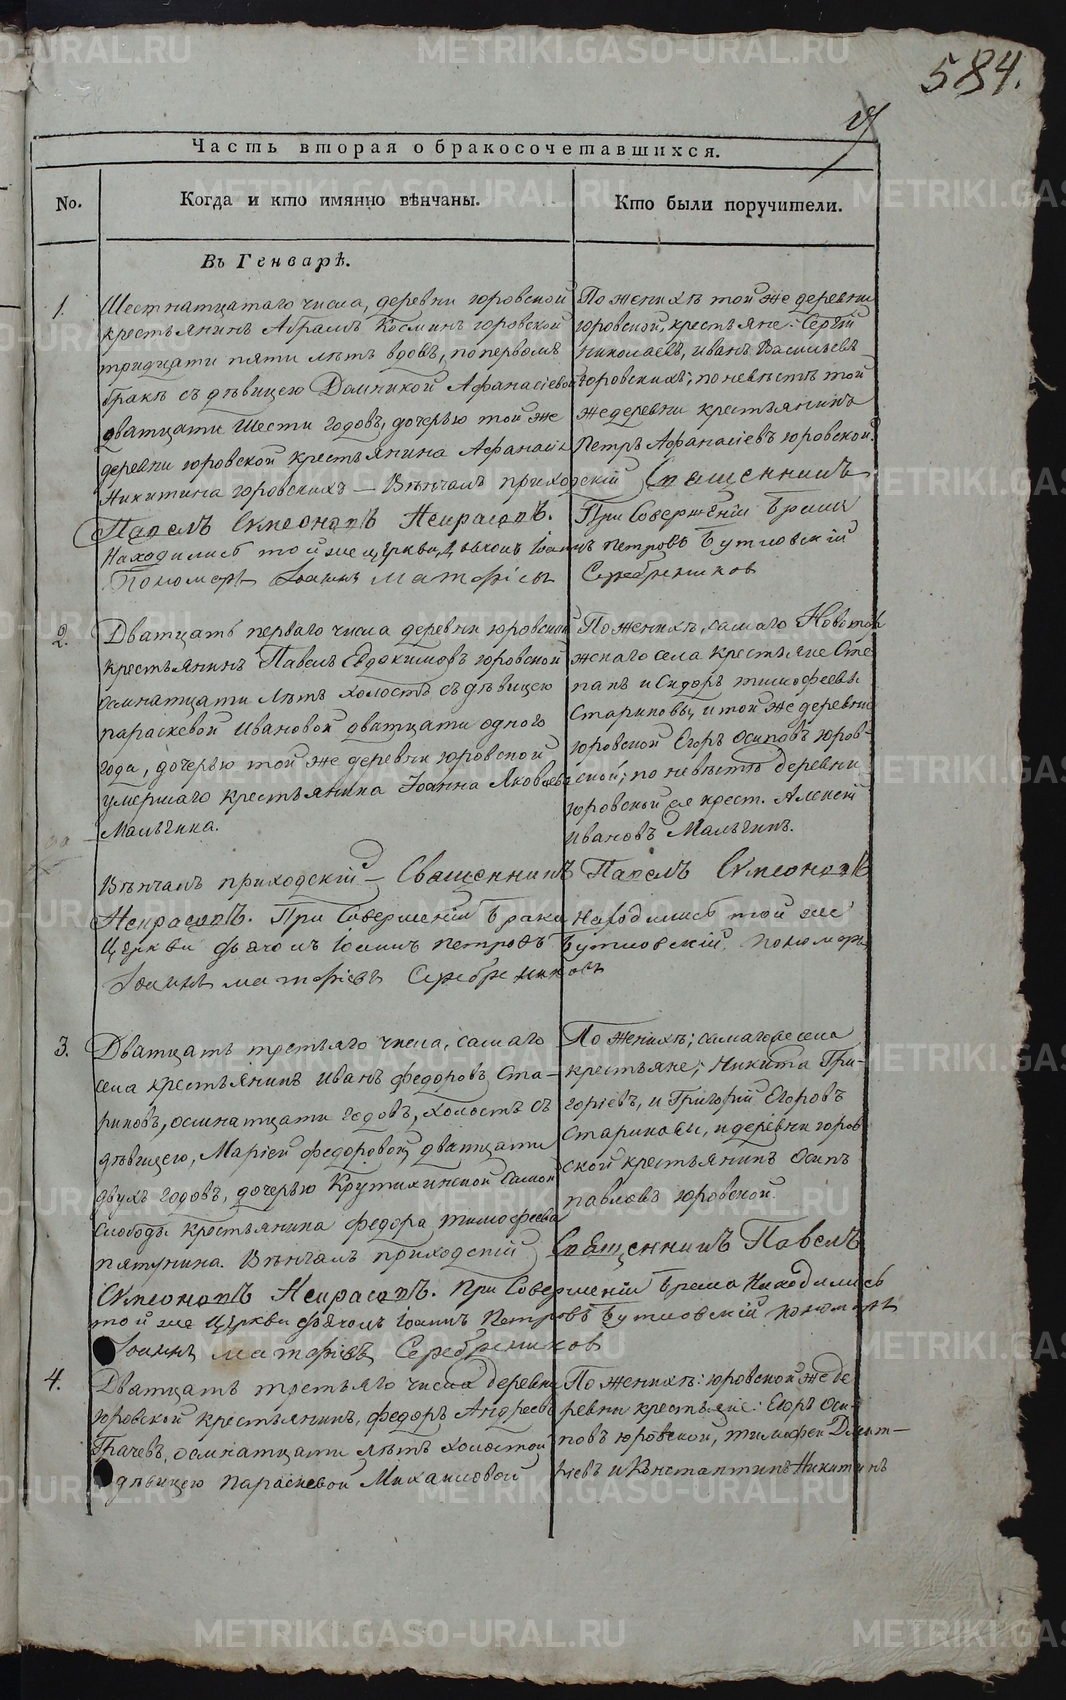 584.
Часть вторая о бракосочетавшихся.
No.
Когда и кто имянно вѣнчаны.
Кто были поручители.
Въ Генварѣ.
1.
Шестнатцатаго числа, деревни юровской
крестьянинъ Абрамъ Козминъ юровской
тридцати пяти лѣтъ вдовъ, по первомъ
бракѣ съ дѣвицею Домникой Афанасіевой
дватцати шести годовъ, дочерью той же
деревни юровской крестьянина Афанасія
Никитина юровскихъ — Вѣнчалъ приходскій Священникъ
Павелъ Симеоновъ Некрасовъ. При Совершеніи брака
Находились той же церкви, дьячокъ Іоаннъ Петровъ Бутковскій
Пономарь Іоаннъ Матфіевъ Серебрениковъ
По женихѣ той же деревни
юровской, крестьяне: Сергій
Николаевъ, иванъ Васильевъ
юровскихъ; по невѣстѣ той
же деревни крестьянинъ
Петръ Афанасіевъ юровской.
2.
Дватцать перваго числа деревни юровской
крестьянинъ Павелъ Евдокимовъ юровской
осмнатцати лѣтъ холостъ съ дѣвицею
параскевой Ивановой дватцати одного
года, дочерью той же деревни юровской
умершаго крестьянина Іоанна Яковлева
Мальгина.
По женихѣ, самаго Новотор
жскаго села крестьяне Сте
панъ и Сидоръ тимофеевы
Стариковы, и той же деревни
юровской Егоръ Осиповъ юров-
ской; по невѣстѣ деревни
юровской ея крест. Алексей
Ивановъ Мальгинъ.
Вѣнчалъ приходскій — Священникъ Павелъ Симеоновъ
Некрасовъ. При Совершеніи брака находились той же
Церкви дьячокъ Іоаннъ Петровъ Бутковскій, пономарь
Іоаннъ Матфіевъ Серебрениковъ
3.
Дватцать третьяго числа, самаго
села крестьянинъ иванъ федоровъ Ста-
риковъ, осмнатцати годовъ, холостъ съ
дѣвицею, Маріей федоровой дватцати
двухъ годовъ, дочерью Крутихинской самой
Слободы крестьянина федора тимофеева
пятунина. Вѣнчалъ приходскій Священникъ Павелъ
Симеоновъ Некрасовъ. При Совершеніи брака Находились
той же Церкви дьячокъ Іоаннъ Петровъ Бутковскій пономарь
Іоаннъ Матфіевъ Серебрениковъ
По женихѣ; самаго села
крестьяне; Никита Гри-
горіевъ, и Григорій Егоровъ
Стариковы, и деревни юров
ской крестьянинъ Осипъ
павловъ юровской.
4.
Дватцать третьяго числа деревни
юровской крестьянинъ, федоръ Андреевъ
Ткачевъ, осмнатцати лѣтъ холостой
съ дѣвицею Параскевой Михаиловой
По женихѣ: юровской же де
ревни крестьяне: Егоръ Оси-
повъ юровской, тимофей Дмит-
ріевъ и Константинъ Никитинъ
METRIKI.GASO-URAL.RU